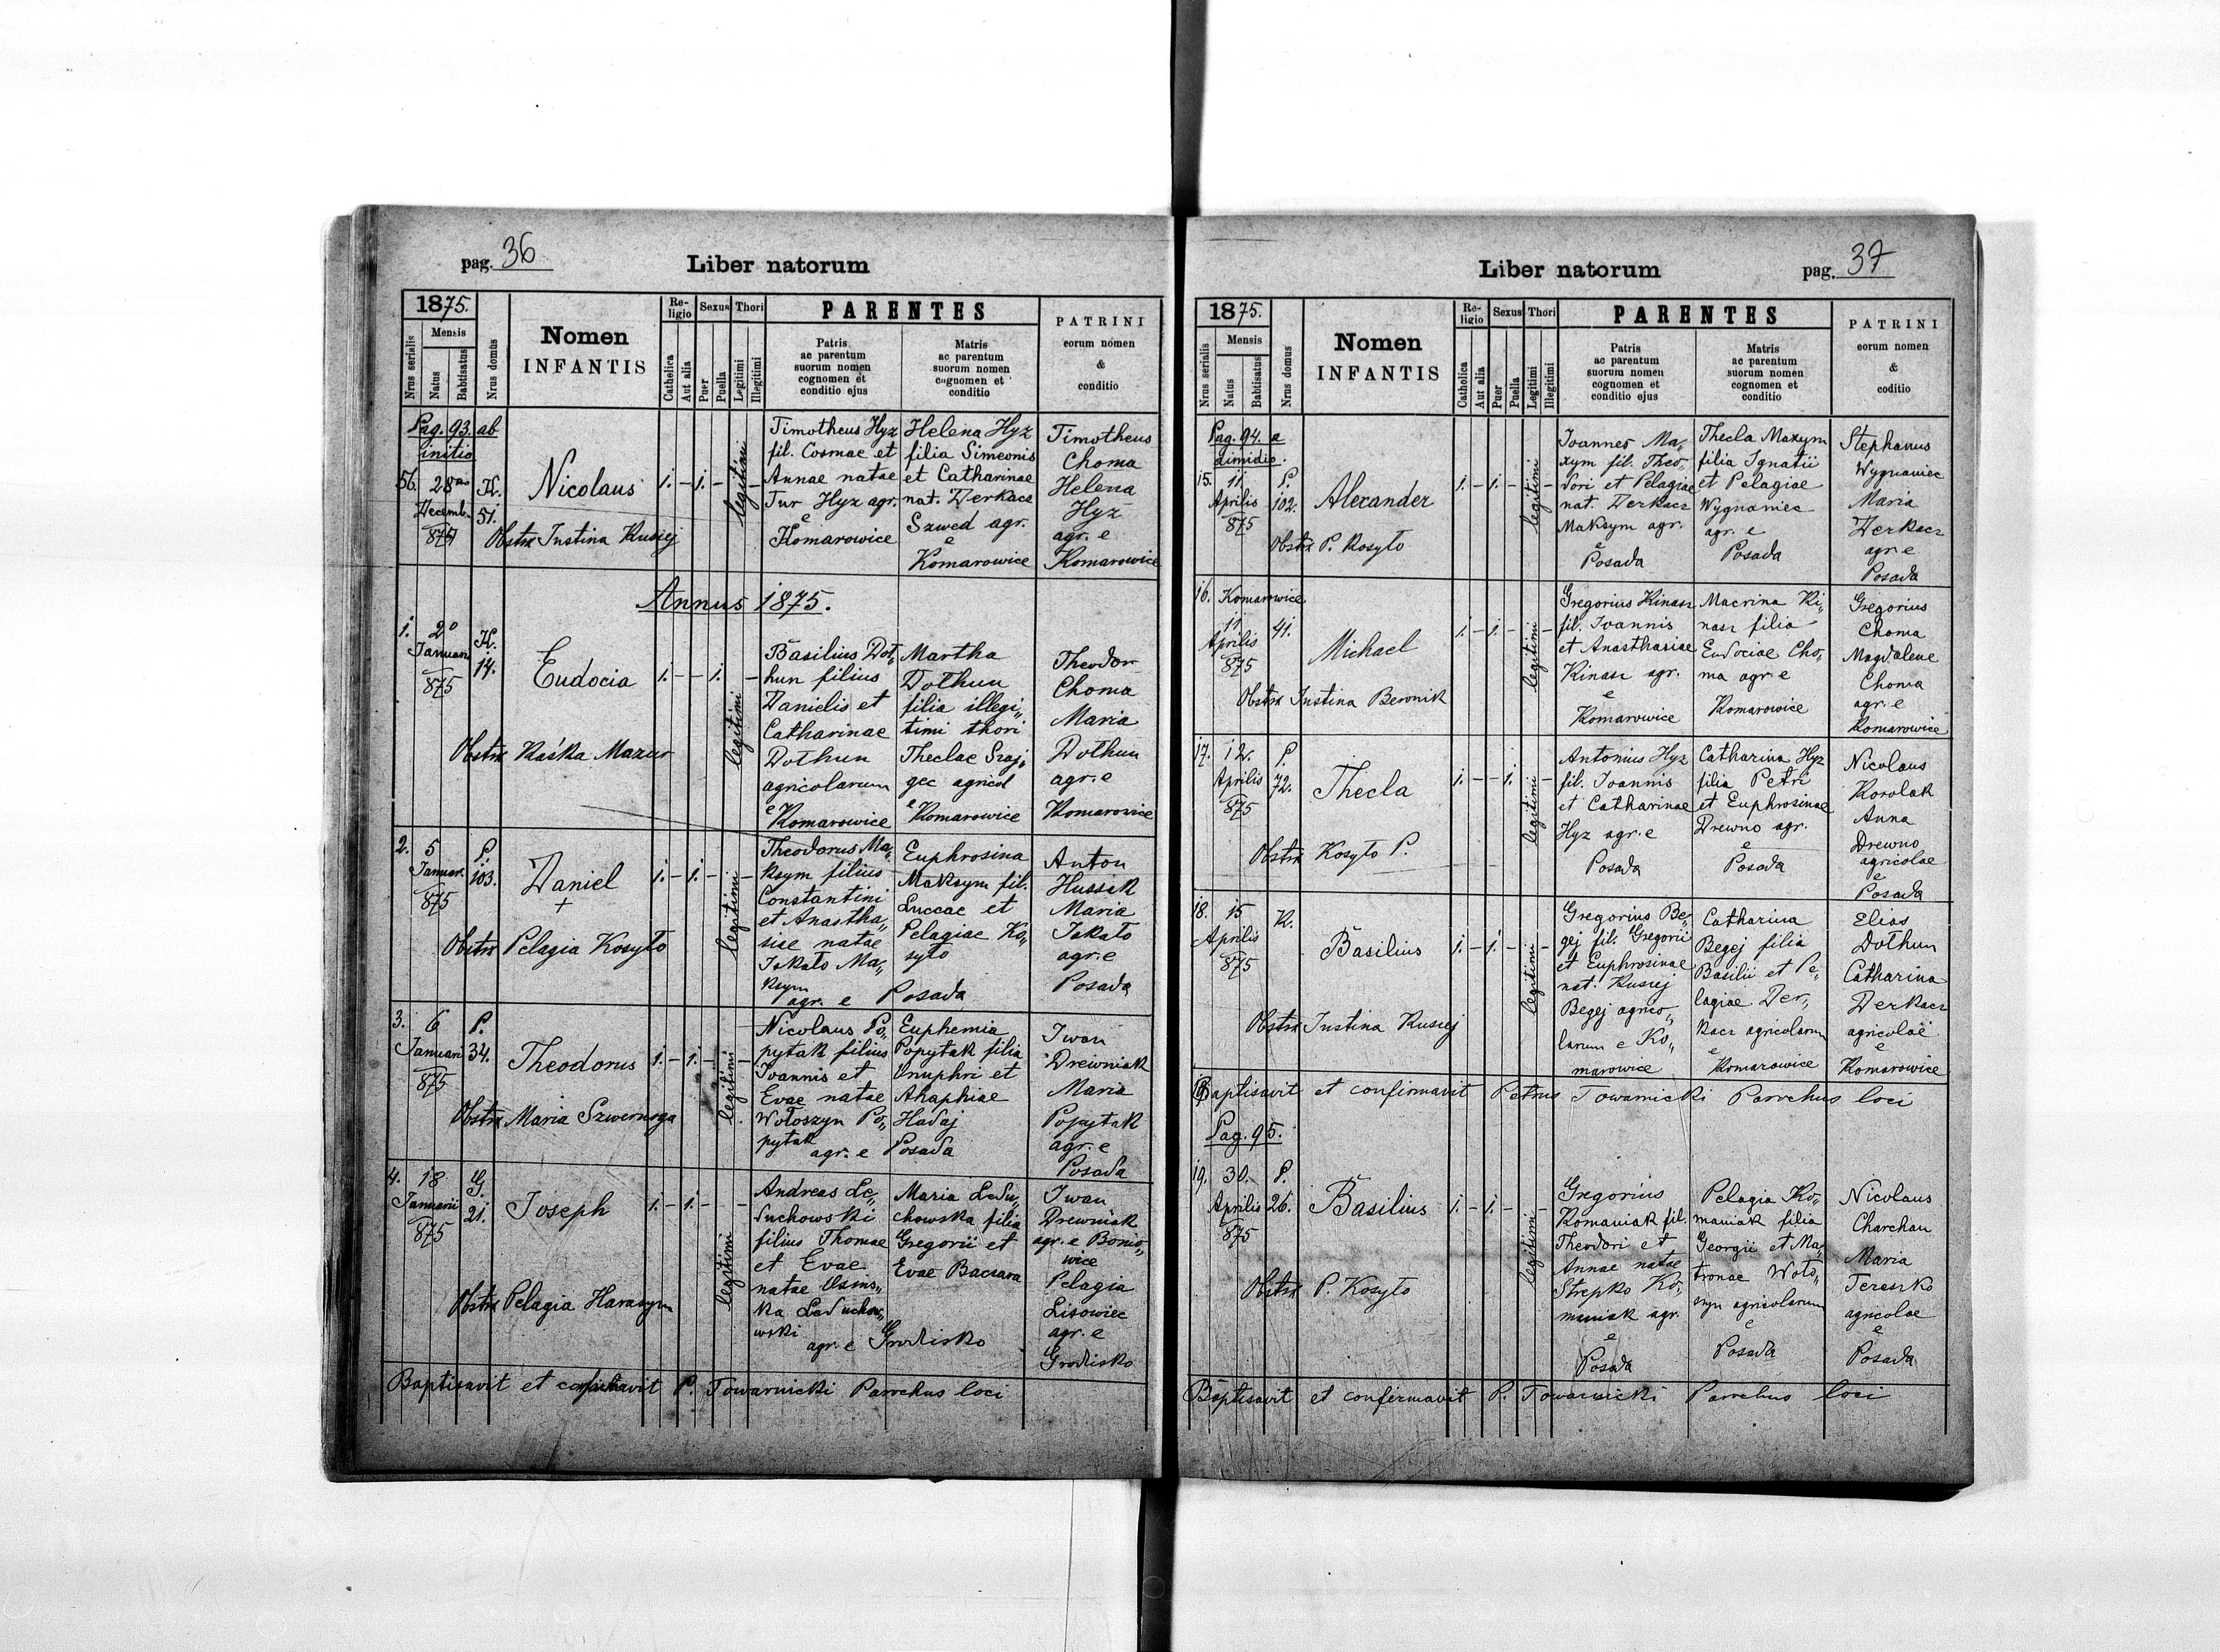 pag. 36
Liber natorum
1875.
Nrus serialis
Mensis
Natus
Babtisatus
Nrus domus
Nomen
INFANTIS
Re-
ligio
Catholica
Aut alia
Sexus
Puer
Puella
Thori
Legitimi
Illegitimi
PARENTES
Patris
ac parentum
suorum nomen
cognomen et
conditio ejus
Matris
ac parentum
suorum nomen
cognomen et
conditio
PATRINI
eorum nomen
&
conditio
Pag. 93. ab
initio
56.
Decemb.
K.
51.
Nicolaus
1. – 1. –
legitimi
Obstx Justina Kusiej
Timotheus Hyz
fil. Cosmae et
Annae natae
Tur Hyz agr.
e
Komarowice
Helena Hyz
filia Simeonis
et Catharinae
nat. Derkacz
Szwed agr.
e
Komarowice
Timotheus
Choma
Helena
Hyz
agr. e
Komarowice
Annus 1875.
1.
2º
Januarii
875
K.
14.
Eudocia
1. – – 1. –
legitimi
Obstx Kaśka Mazur
Basilius Dot„
hun filius
Danielis et
Catharinae
Dothun
agricolarum
e Komarowice
Martha
Dothun
filia illegi„
timi thori
Theclae Szaj„
gec agricol
e Komarowice
Theodor
Choma
Maria
Dothun
agr. e
Komarowice
2.
5
Januar.
875
P.
103.
Daniel
+
1. – 1. – –
legitimi
Obstx Pelagia Kosyło
Theodorus Ma„
ksym filius
Constantini
et Anastha„
siae natae
Ma„
ksym
agr. e Posada
Euphrosina
Maksym fil.
Luccae et
Pelagiae Ko„
syło
Anton
Hussak
Maria
agr. e
Posada
3.
6
Januari
875
P.
34.
Theodorus
1. – 1. – –
legitimi
Obstx Maria
Nicolaus Po„
pytak filius
Joannis et
Evae natae
Wołoszyn Po„
pytak
agr. e Posada
Euphemia
Popytak filia
Onuphri et
Ahaphiae
Hadaj
Iwan
Drewniak
Maria
Popytak
agr. e
Posada
4.
18
Januarii
875
G.
21.
Joseph
1. – 1. – –
legitimi
Obstx Pelagia Harasym
Andreas Le„
duchowski
filius Thomae
et Evae
natae
ka Leduchow„
wski
agr. e Grodisko
Maria Ledu„
chowska filia
Gregorii et
Evae Baczara
Iwan
Drewniak
agr. e Bonio„
wice
Pelagia
Lisowiec
agr. e
Grodisko
Baptisavit et confirmavit P. Towarnicki Parochus loci
Liber natorum
pag. 37
1875.
Nrus serialis
Mensis
Natus
Babtisatus
Nrus domus
Nomen
INFANTIS
Re-
ligio
Catholica
Aut alia
Sexus
Puer
Puella
Thori
Legitimi
Illegitimi
PARENTES
Patris
ac parentum
suorum nomen
cognomen et
conditio ejus
Matris
ac parentum
suorum nomen
cognomen et
conditio
PATRINI
eorum nomen
&
coditio
Pag. 94. a
dimidio.
15.
11.
Aprilis
875
P.
102.
Alexander
1. – 1. – –
legitimi
Obstx P. Kosyło
Joannes Ma„
xym fil. Theo„
dori et Pelagiae
nat. Derkacz
Maksym agr.
e
Posada
Thecla Maxym
filia Ignatii
et Pelagiae
Wygnaniec
agr. e
Posada
Stephanus
Wygnaniec
Maria
Derkacz
agr. e
Posada
16. Komarowice
11
Aprilis
875
41.
Michael
1. – 1. – –
legitimi
Obstx Justina Bewnik
Gregorius Kinasz
fil. Joannis
et Anasthasiae
Kinasz agr.
e
Komarowice
Macrina Ki„
nasz filia
Eudociae Cho„
ma agr e
Komarowice
Gregorius
Choma
Magdalene
Choma
agr. e
Komarowice
17.
12.
Aprilis
875
P.
72.
Thecla
1. – – 1. –
legitimi
Obstx Kosyło P.
Antonius Hyz
fil. Joannis
et Catharinae
Hyz agr. e
Posada
Catharina Hyz
filia Petri
et Euphrosinae
Drewno agr.
e
Posada
Nicolaus
Korolak
Anna
Drewno
agricolae
e
Posada
18.
15
Aprilis
875
K.
Basilius
1. – 1. – –
legitimi
Obstx Justina Kusiej
Gregorius Be„
gej fil. Gregorii
et Euphrosinae
nat. Kusiej
Begej agrico„
larum e Ko„
marowice
Catharina
Begej filia
Basilii et Pe„
lagiae Der„
kacz agricolarum
e
Komarowice
Elias
Dothun
Catharina
Derkacz
agricolae
e
Komarowice
Baptisavit et confirmavit Petrus Towarnicki Parochus loci
Pag. 95.
19.
30.
Aprilis
875
P.
26.
Basilius
1. – 1. – –
legitimi
Obstx P. Kosyło
Gregorius
Romaniak fil.
Theodori et
Annae natae
Strepko Ro„
maniak agr.
e
Posada
Pelagia Ro„
maniak filia
Georgii et Ma„
tronae Woło„
szyn agricolarum
e
Posada
Nicolaus
Charchan
Maria
Tereszko
agricolae
e
Posada
Baptisavit et confirmavit P. Towarnicki Parochus loci